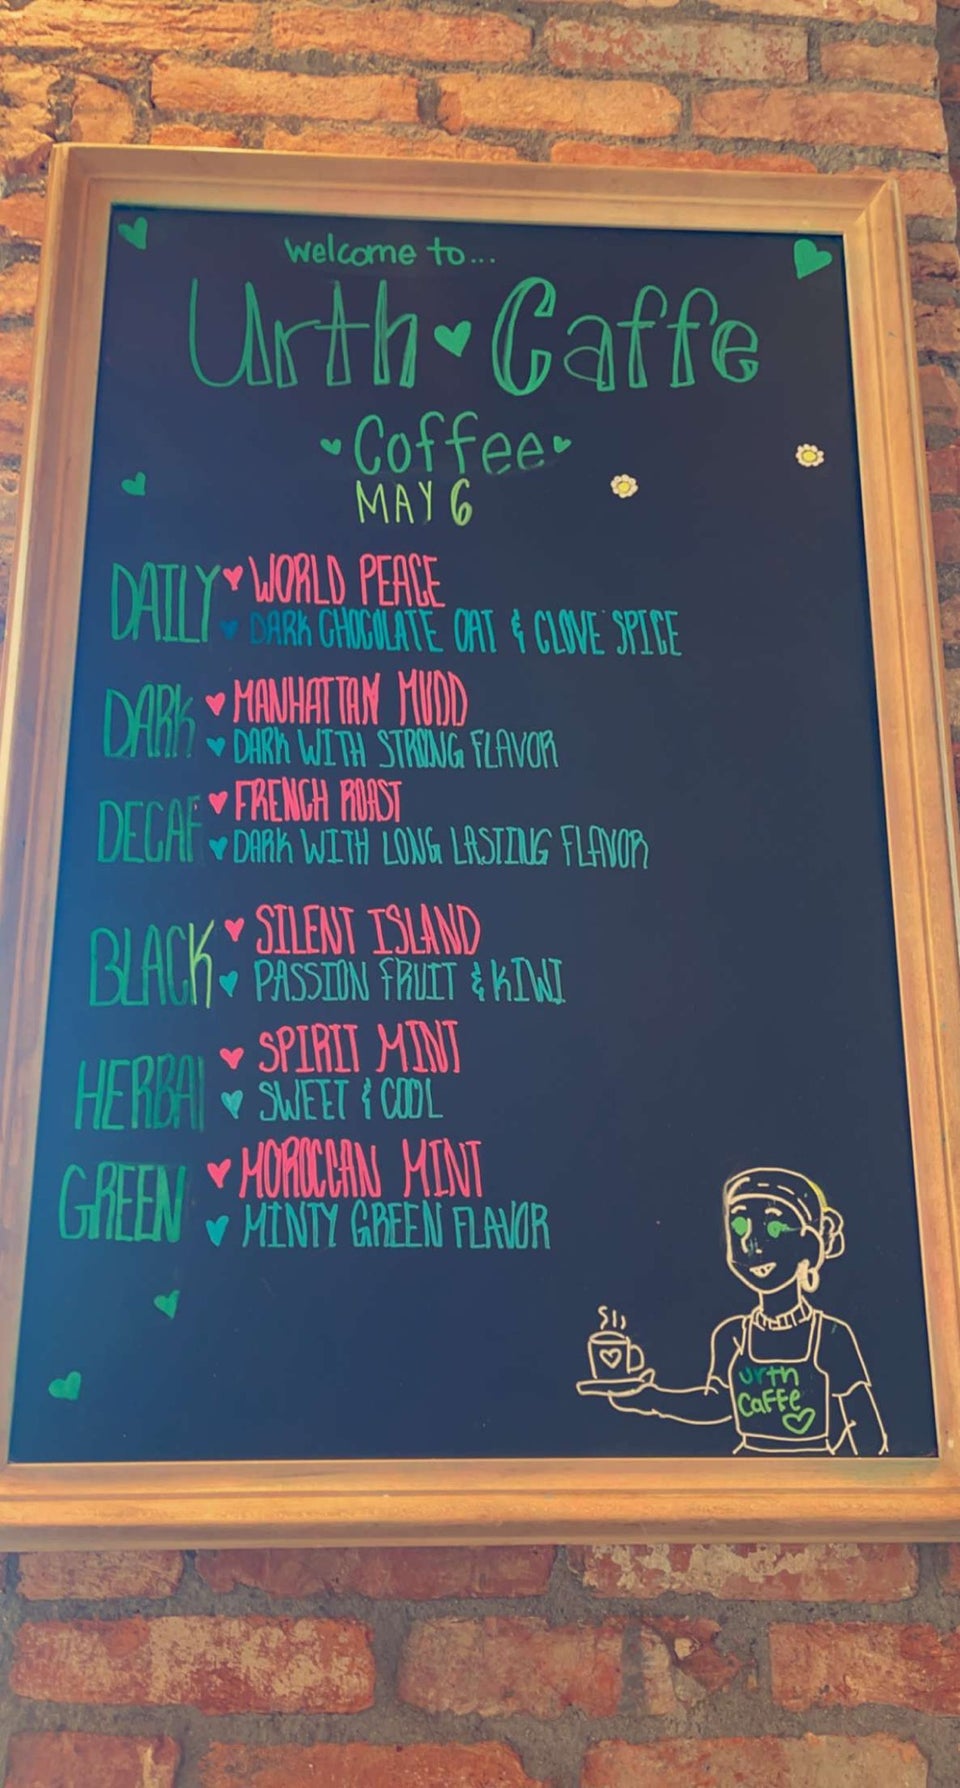 welcome to...
Urth Caffe
Coffee
MAY 6
DAILY WORLD PEACE
DARK CHOCOLATE OAT & CLOVE SPICE
DARK MANHATTAN MUDD
DARK WITH STRONG FLAVOR
DECAF FRENCH ROAST
DARK WITH LONG LASTING FLAVOR
BLACK SILENT ISLAND
PASSION FRUIT & KIWI
HERBAL SPIRIT MINT
SWEET & COOL
GREEN MOROCCAN MINT
MINTY GREEN FLAVOR
urth
CaFFe